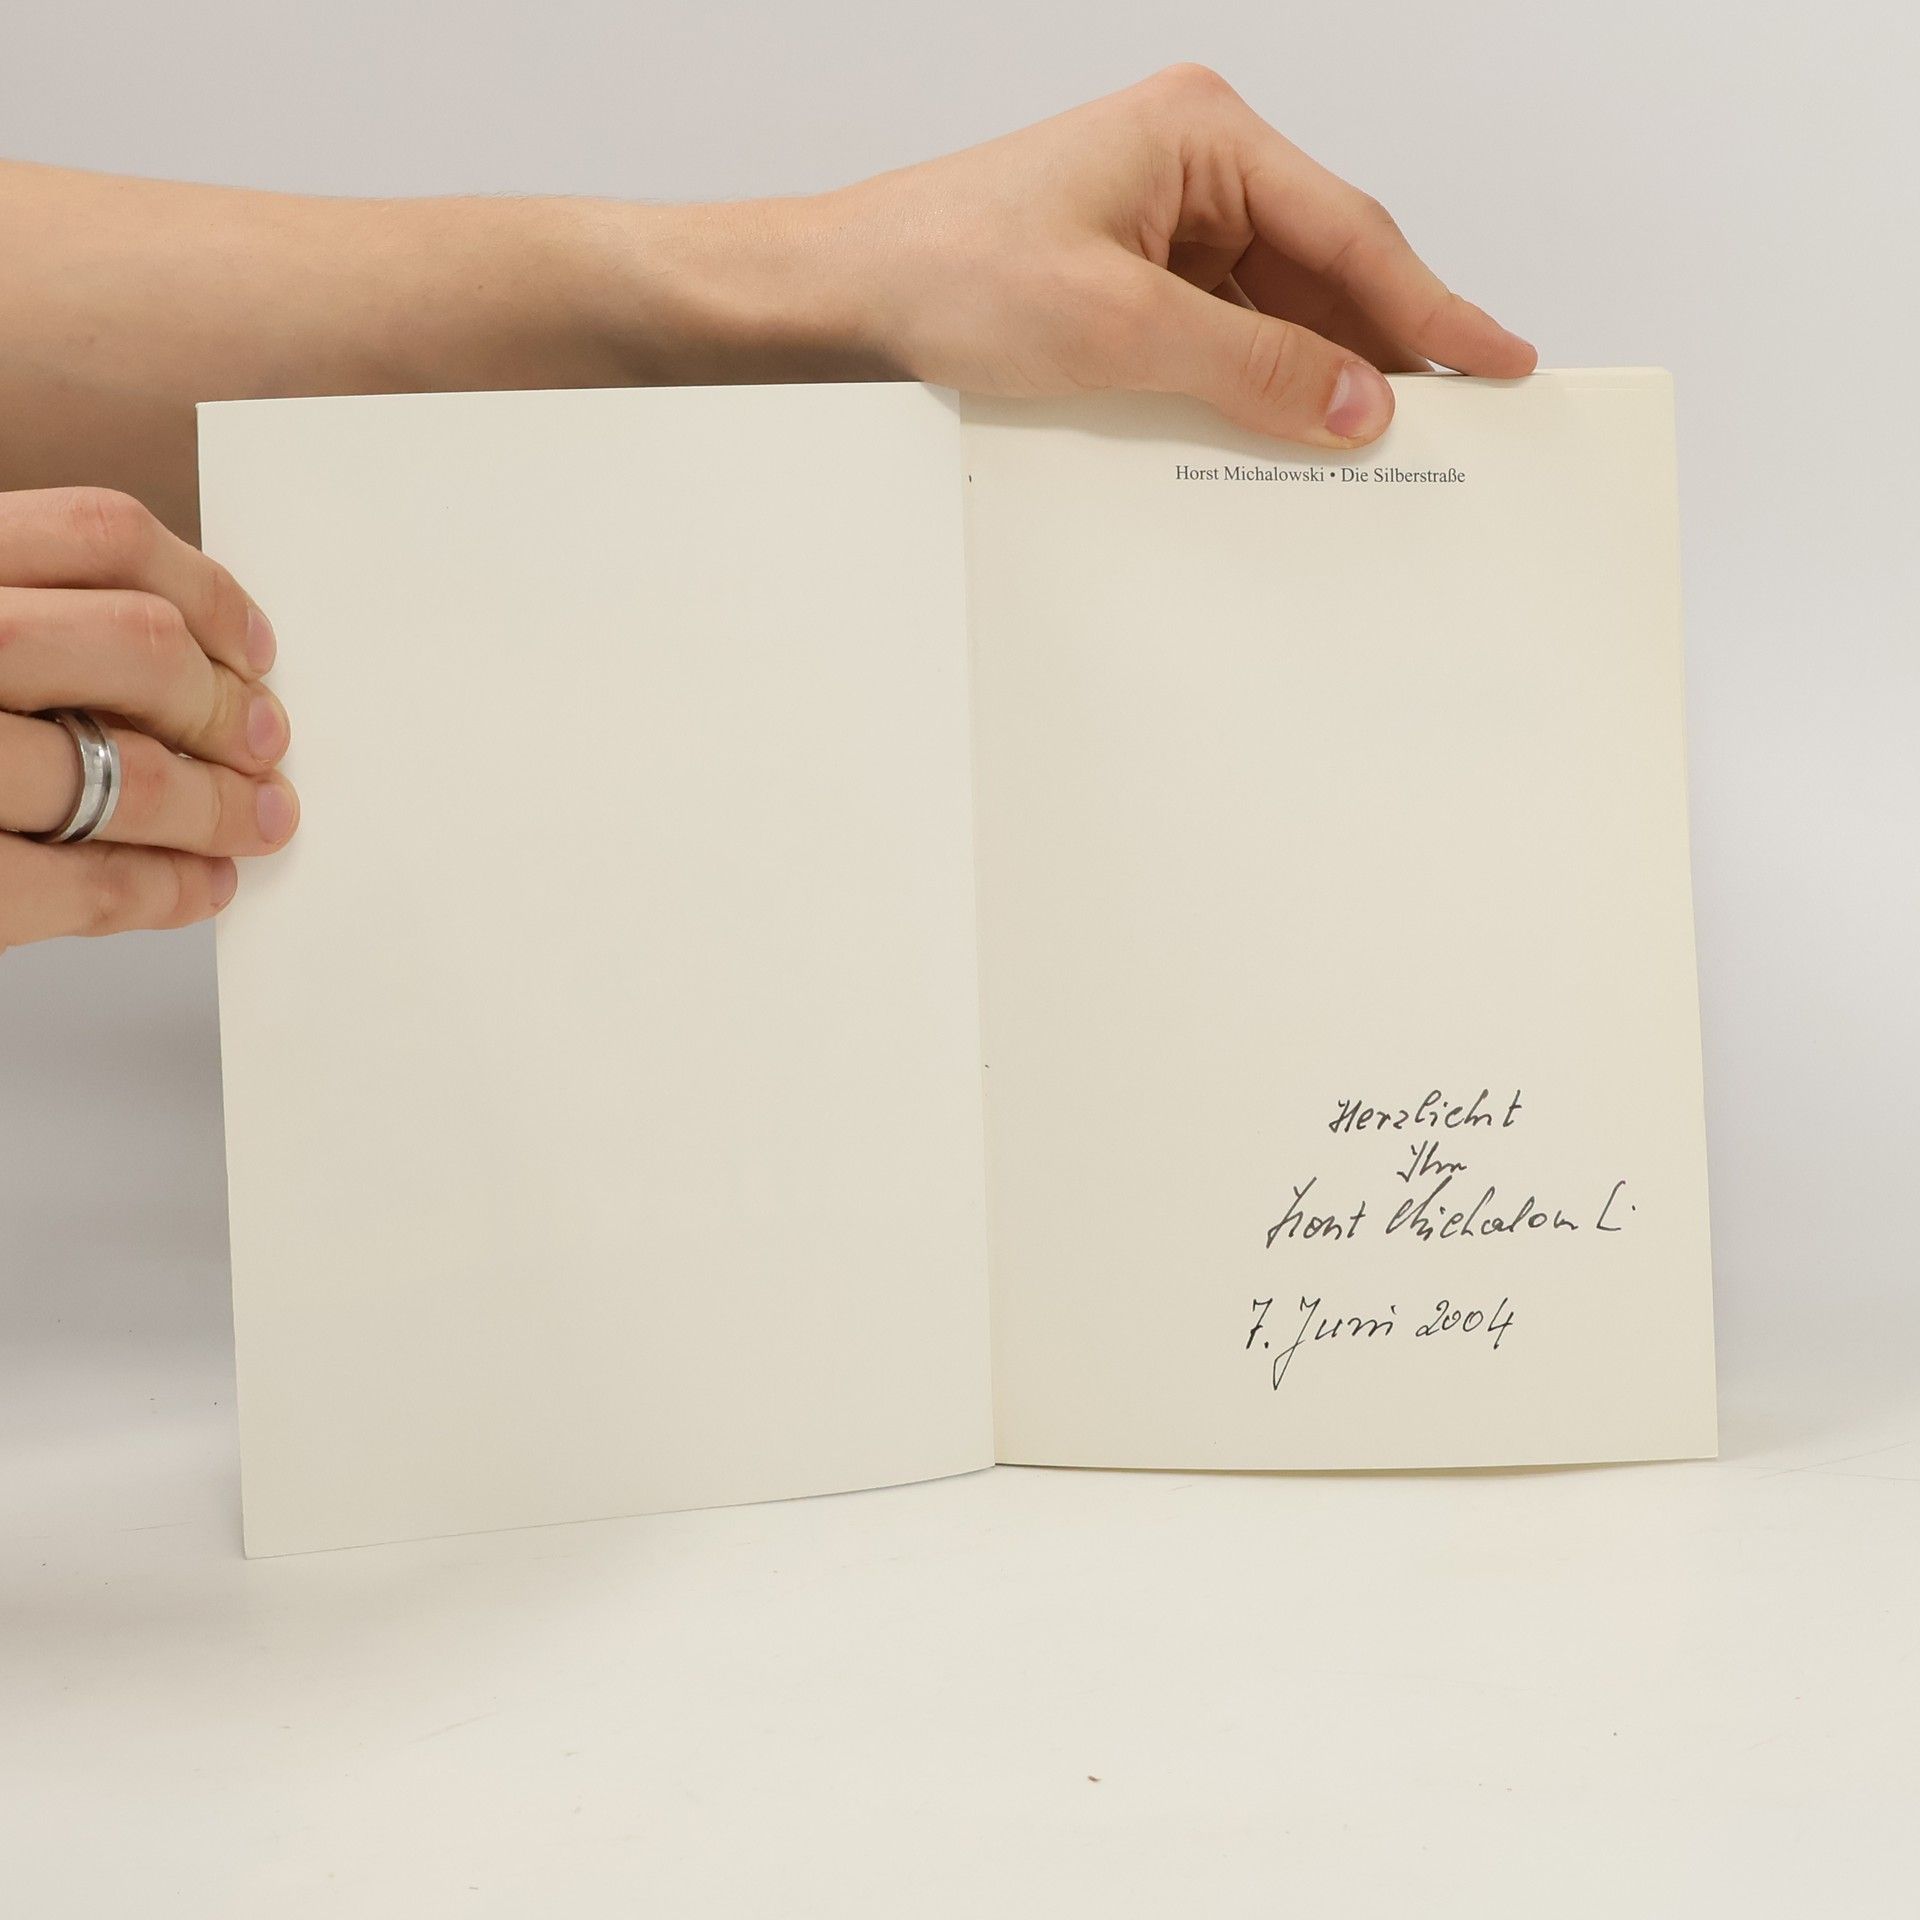 Horst Michalowski • Die Silberstraße
Herzlichst
Ihr
Horst Michalowski
7. Juni 2004